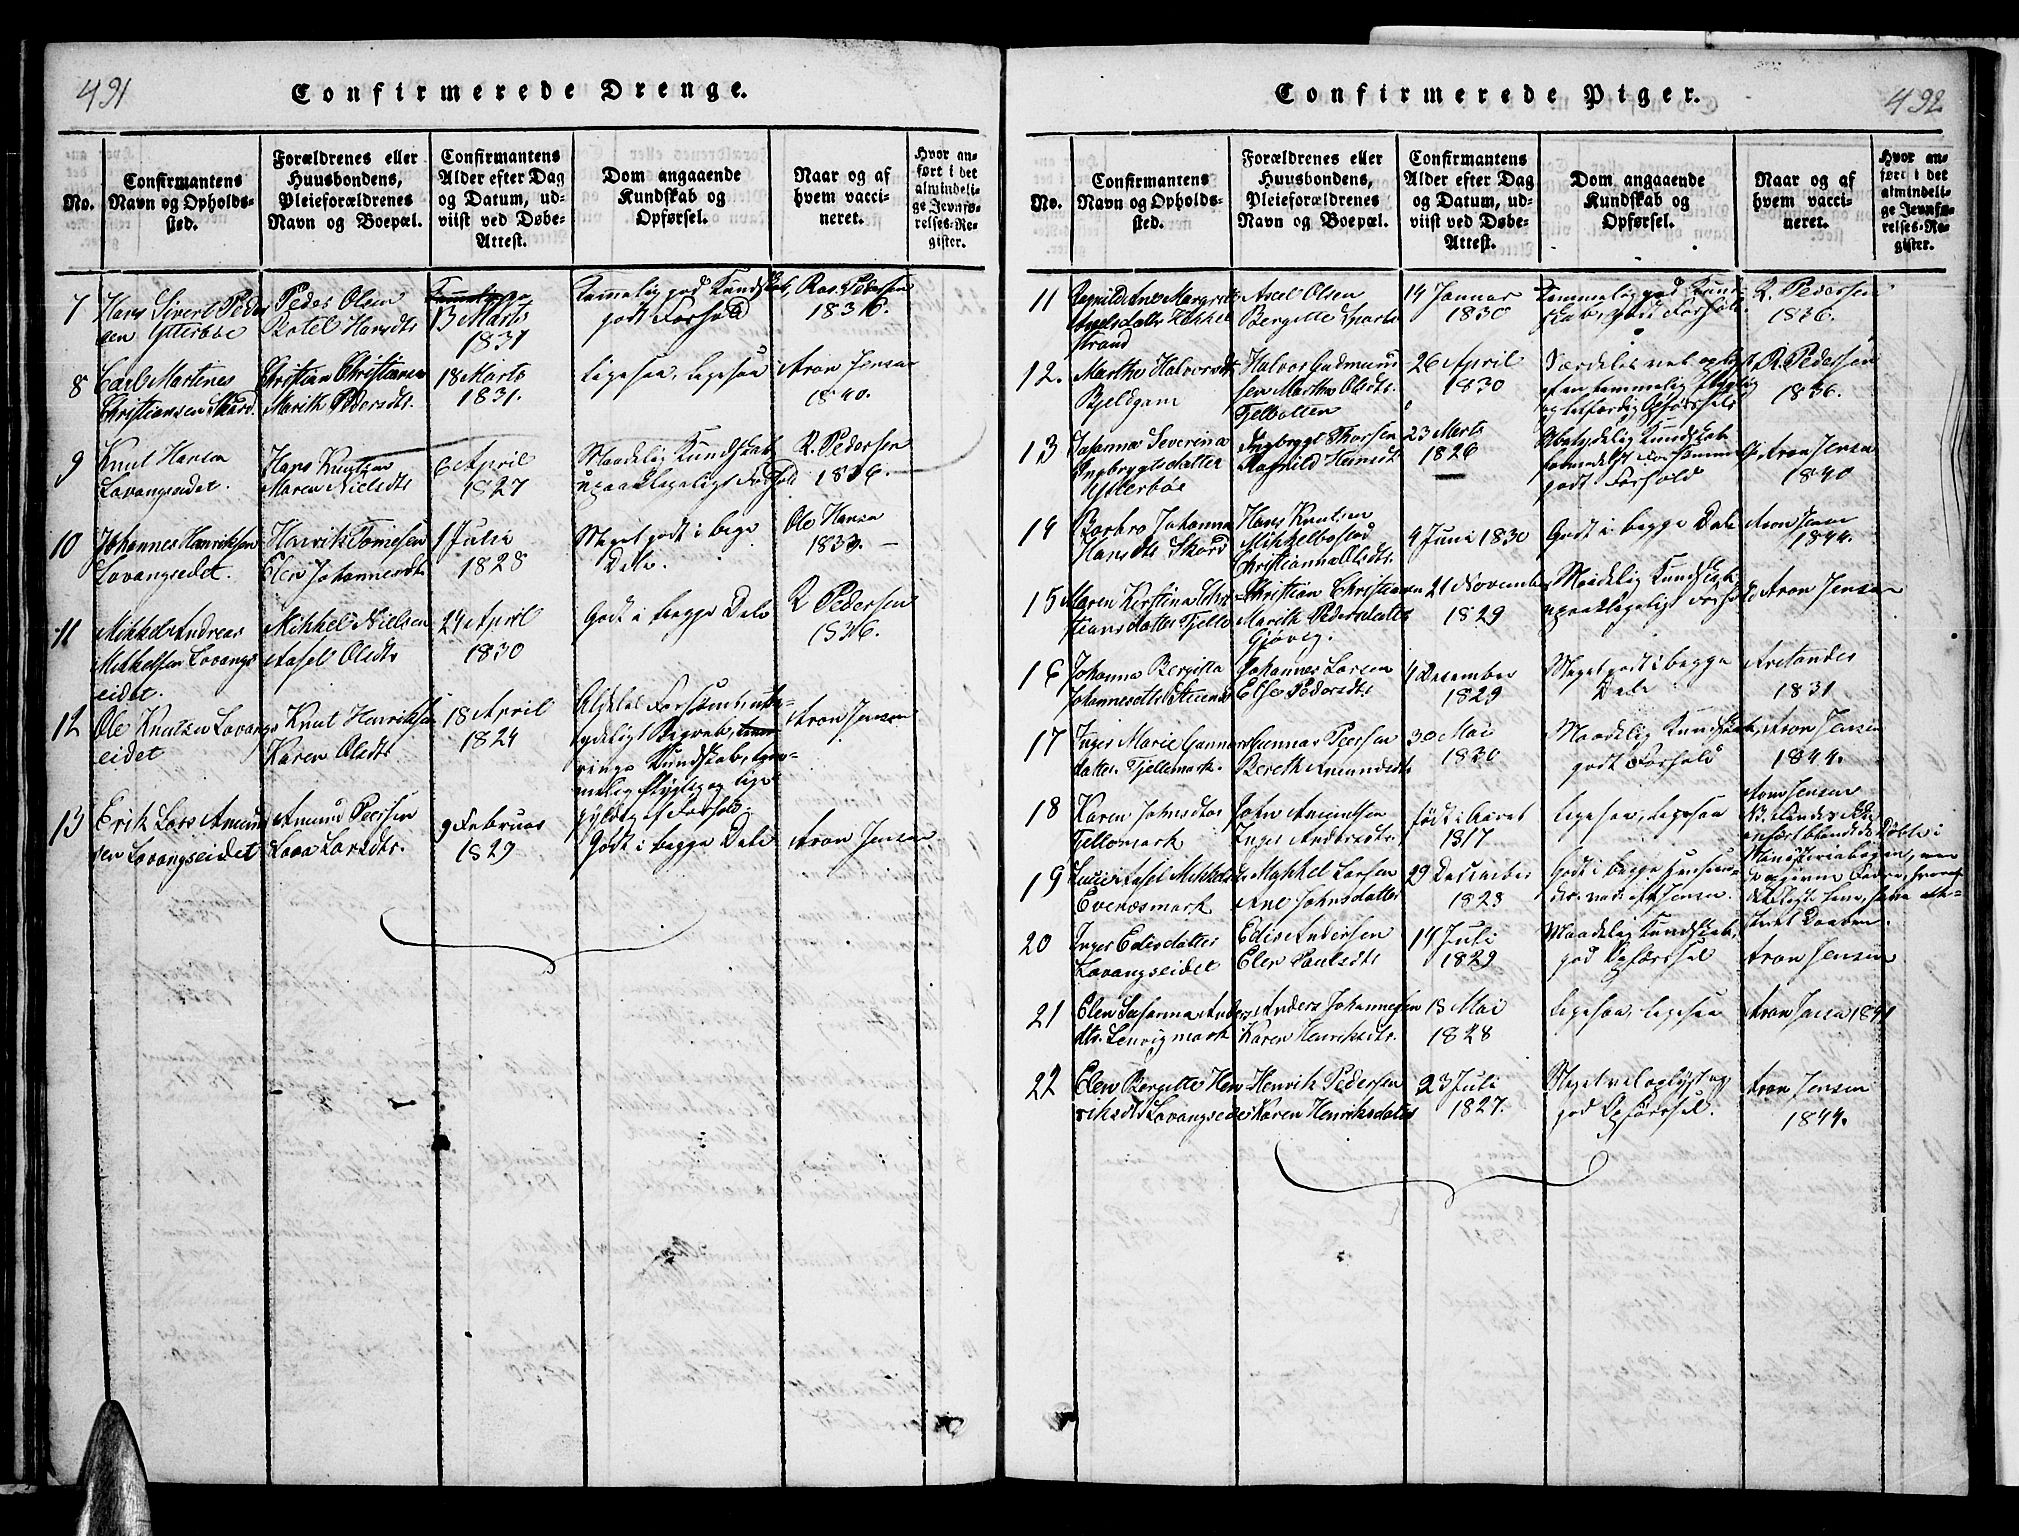 491
Confirmerede Drenge.
No.
Confirmantens
Navn og Opholds-
sted.
Forældrenes eller
Huusbondens,
Pleieforældrenes
Navn og Boepæl.
Confirmantens
Alder efter Dag
og Datum, ud-
viist ved Døbe-
Attest.
Dom angaaende
Kundskab og
Opførsel.
Naar og af
hvem vacci-
neret.
Hvor an-
ført i det
almindeli-
ge Jevnfø-
relses-Re-
gister.
7
Hans Sivert Peder
sen Ytterbøe
Peder Olsen
Hansdtr
13 Marts
1831
Temmelig god Kundskab,
godt Forhold
Ras. Pedersen
1836.
8
Carl Martines
Christiansen Skord
Christian Christiansen
Marith Pedersdtr.
18 Marts
1831.
ligesaa, ligesaa
Aron Jensen
1840.
9
Knut Hansen
Lavangseidet.
Hans Knutsen
Maren Nielsdtr
6 April
1827
Maadelig Kundskab
upaaklageligt Forhold
R. Pedersen
1836
10
Johannes Henriksen
Lavangseidet.
Henrik Tomesen
Elen Johannesdtr
1 Julii
1828
Meget godt i bege
Dele.
Ole Hansen
1833.
11
Mikkel Andreas
Mikkelsen Lavangs
eidet.
Mikkel Nielsen
Aasel Olsdtr
29 April
1830
Godt i begge Dele
R Pedersen
1836.
12
Ole Knutsen Lavangs
eidet
Knut Henriksen
Karen Olsdtr
18 April
1824
Aldeles Forsømt, uty-
deligt Begreb,
ringe Kundskab, tem-
melig flittig og lige-
gyldig af Forhold.
Aron Jensen
13
Erik Lars Amund
sen Lavangseidet
Amund Peersen
Lava Larsdtr.
9 Februar
1829
Godt i begge Dele
Aron Jensen
492
Confirmerede Piger.
No.
Confirmantens
Navn og Opholds-
sted.
Forældrenes eller
Huusbondens,
Pleieforældrenes
Navn og Boepæl.
Confirmantens
Alder efter Dag
og Datum, ud-
viist ved Døbe-
Attest.
Dom angaaende
Kundskab og
Opførsel.
Naar og af
hvem vacci-
neret.
Hvor an-
ført i det
almindeli-
ge Jevnfø-
relses-Re-
gister.
11
Ragnild Ane Margrete
Axelsdatter
strand
Axel Olsen
Bergitte
14 Januar
1830
Temmelig god Kund-
skab, godt Forhold.
R. Pedersen
1836.
12.
Martha Halvorsdtr
Bjeldgam
Halvor Gudmund
sen Martha Olsdtr.
Fjelbotten
26 April
1830
Særdeles vel oplyst
R. Pedersen
1836.
13
Johanna Severina
Ingbrygtsdatter
Ytterbøe
Ingbrygt Thorsen
Ragnild Heinsdtr
23 Marts
1826
Ubetydelig Kundskab
godt Forhold
Aron Jensen
1840
14
Barbro Johanna
Hansdtr Skord
Hans Knutsen
Mikkelbostad
Christianna Olsdtr.
4 Juni 1830
Godt i begge Dele
Aron Jensen
1844.
15
Maren Kirstina Chris
tiansdatter Fjelle
Christian Christiansen
Marith Pedersdatter
Gjøvig.
21 November
1829
Maadelig Kundskab,
upaaklageligt Forhold
Aron Jensen
16
Johanna Bergitta
Johannesdtr
Johannes Larsen
Else Pedersdtr
4 Desember
1829
Meget godt i begge
Dele
Aretander
1831
17
Inger Marie Gunnars
datter. Fjellemark.
Gunnar Peersen
Bereth Amundsdtr
30 Mai
1830
Maadelig Kundskab,
godt Forhold
Aron Jensen
1844.
18
Karen Johnsdtr
Fjellemark
John Amundsen
Inger Andersdtr.
født i Aaret
1817
ligesaa, ligesaa
Aron Jensen
19
Aasel Mikkelsdtr
Evenæsmark
Mykkel Larsen
Ane Johnsdatter
29 Desember
1828
Godt i bege Henseen-
der.
20
Inger Edisdatter
Lavangseidet
Edis Andersen
Elen Paulsdtr
14 Juli
1829
Maadelig Kundskab,
god Opførsel
Aron Jensen
21
Elen Susanna Anders
dtr. Lenvigmark
Anders Johannesen
Karen Henriksdtr.
13 Mai
1828
ligesaa, ligesaa
Aron Jensen 1841
22
Elen Bergitte Hen
riksdtr Lavangseidet
Henrik Pedersen
Karen Henriksdatter
23 Juli
1827.
Meget vel oplyst og
god Opførsel.
Aron Jensen
1844.